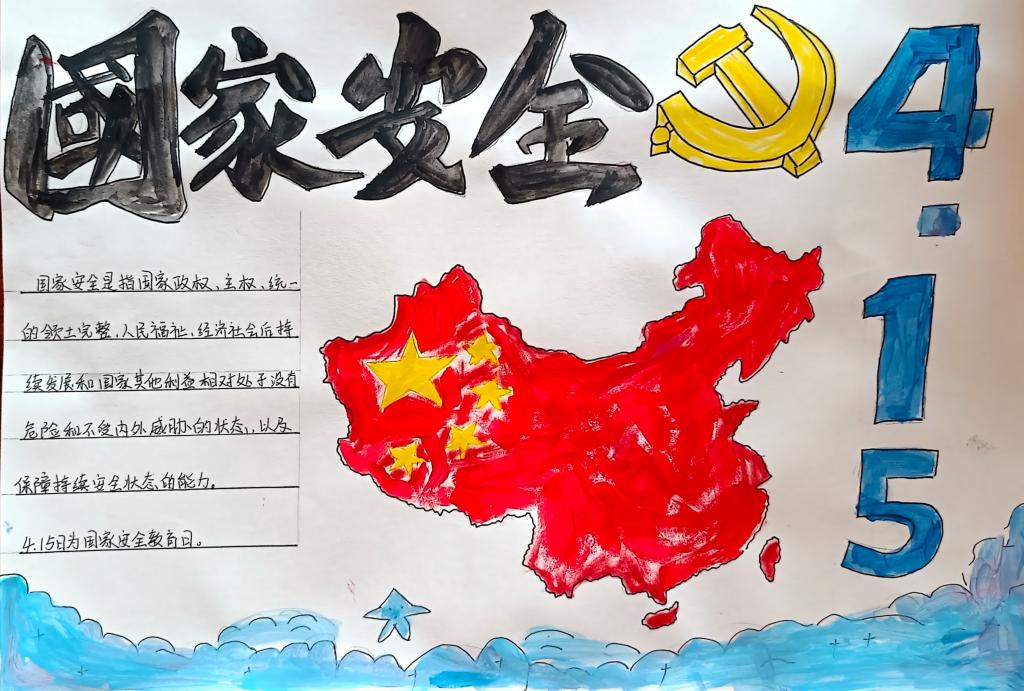 國家安全
4
·
15
国家安全是指国家政权、主权、统一
的领土完整、人民福祉、经济社会后持
续发展和国家其他利益相对处于没有
危险和不受内外威胁的状态,以及
保障持续安全状态的能力。
4.15日为国家安全教育日。